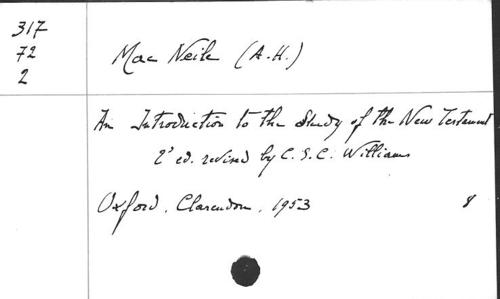 317
72
2
Mac Neile (A.H.)
An Introduction to the Study of the New Testament
2ᵉ ed. revised by C. S. C. Williams
Oxford, Clarendon, 1953 8